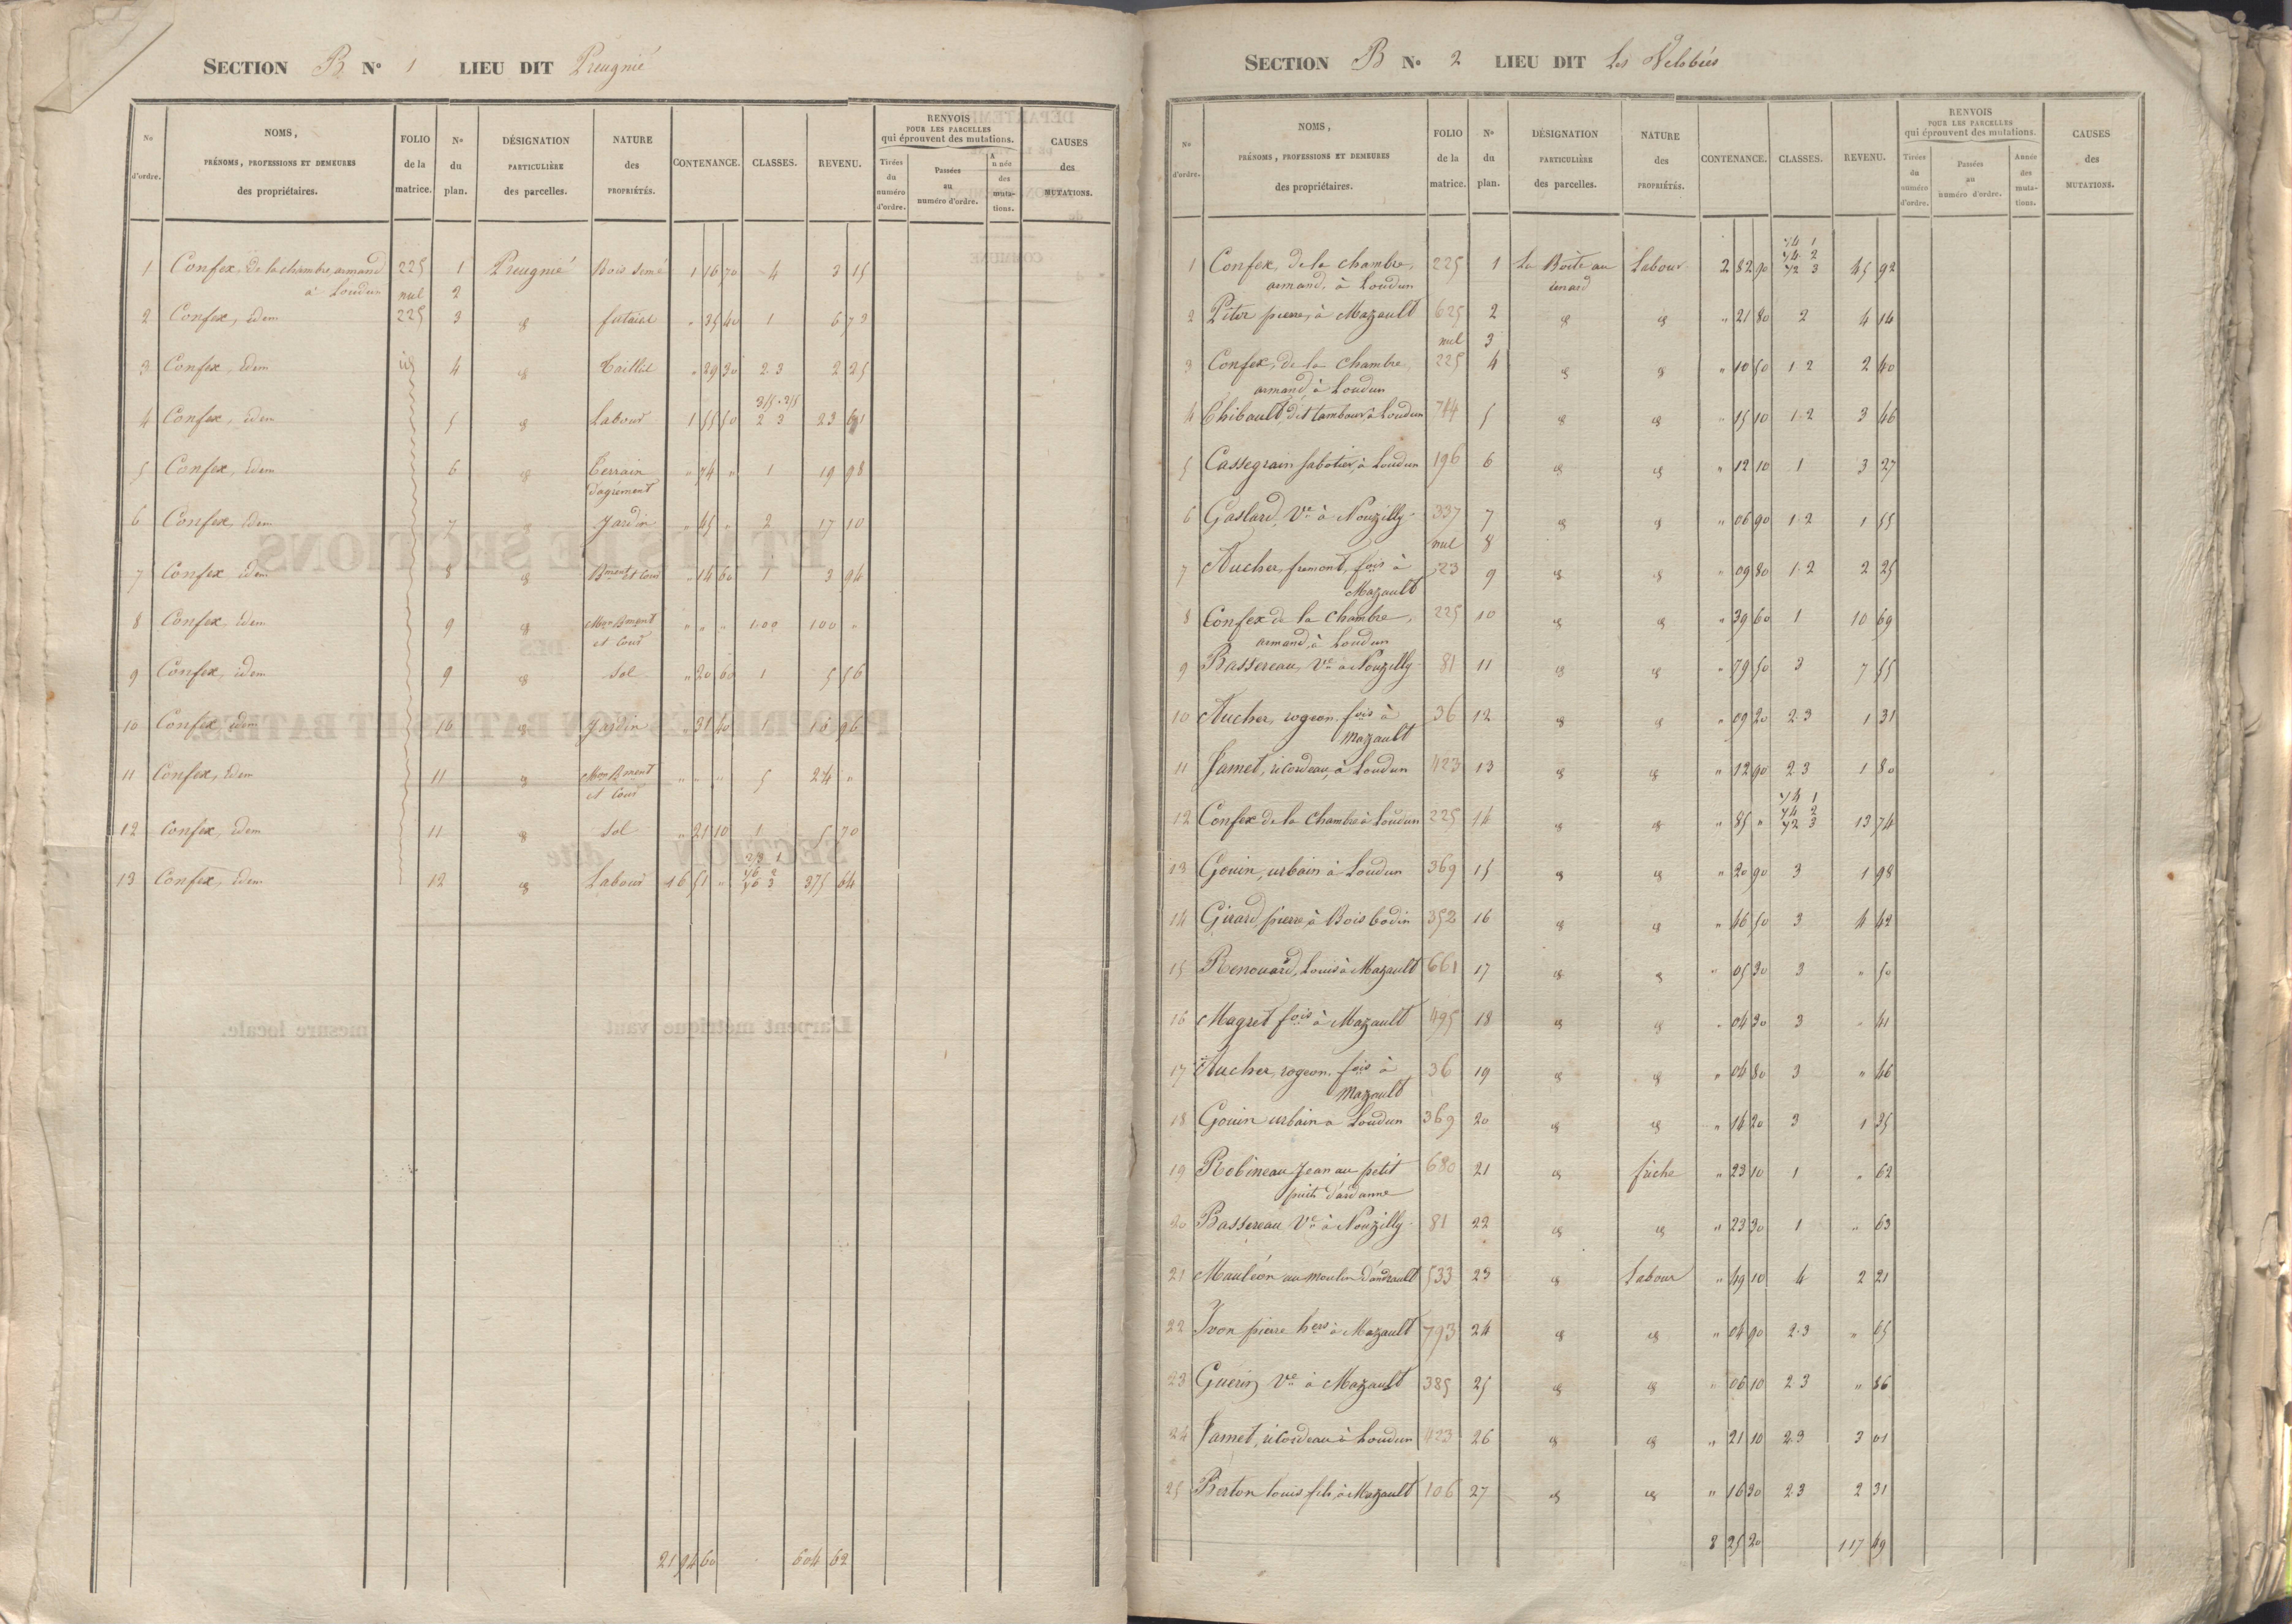 SECTION B No 1 LIEU DIT Preugnié
No d'ordre. NOMS, PRÉNOMS, PROFESSIONS ET DEMEURES des propriétaires. FOLIO de la matrice. No du plan. DÉSIGNATION PARTICULIÈRE des parcelles. NATURE des PROPRIÉTÉS. CONTENANCE. CLASSES. REVENU. RENVOIS POUR LES PARCELLES qui éprouvent des mutations. Tirées du numéro d'ordre. Passées au numéro d'ordre. Année des mutations. CAUSES des MUTATIONS.
1 Confex, de la chambre, armand 225 1 Preugnié Bois semé 1 16 70 4 3 15
à Loudun nul 2
2 Confex, idem 225 3 id futaie " 35 40 1 6 72
3 Confex, idem id 4 id Taillis " 29 30 2.3 2 25
4 Confex, idem 5 id Labour 1 55 50 2 3 23
5 Confex, idem 6 id Terrain " 74 " 1 19 98
d'agrément
6 Confex, idem 7 id Jardin " 45 " 2 17 10
7 Confex, idem 8 id Bment et Cour " 14 60 1 3 94
8 Confex, idem 9 id Mon Bment " " " 100 "
et Cour
9 Confex, idem 9 id Sol " 20 60 1 5 56
10 Confex, idem 10 id Jardin " 31 40 1 16 96
11 Confex, idem 11 id Mon Bment " " " 5 24 "
et Cour
12 Confex, idem 11 id Sol " 21 10 1 5 70
13 Confex, idem 12 id Labour 16 51 " 375 64
21 94 60 604 62
SECTION B No 2 LIEU DIT Les
No d'ordre. NOMS, PRÉNOMS, PROFESSIONS ET DEMEURES des propriétaires. FOLIO de la matrice. No du plan. DÉSIGNATION PARTICULIÈRE des parcelles. NATURE des PROPRIÉTÉS. CONTENANCE. CLASSES. REVENU. RENVOIS POUR LES PARCELLES qui éprouvent des mutations. Tirées du numéro d'ordre. Passées au numéro d'ordre. Année des mutations. CAUSES des MUTATIONS.
1/4 1
1/4 2
1 Confex, de la chambre, 225 1 La Boite au Labour 2 82 90 1/2 3 45 92
armand, à Loudun
2 pierre, à Mazault 625 2 id id " 21 80 2 4 14
nul 3
3 Confex, de la chambre, 225 4 id id " 10 50 1.2 2 40
armand, à Loudun
4 Thibault, dit tambour à Loudun 714 5 id id " 15 10 1.2 3 46
5 Cassegrain sabotier, à Loudun 196 6 id id " 12 10 1 3 27
6 Gaslard, Ve à Nouzilly 337 7 id id " 06 90 1.2 1 55
nul 8
7 Aucher, fremont, fois à 23 9 id id " 09 80 1.2 2 25
Mazault
8 Confex de la chambre, 225 10 id id " 39 60 1 10 69
armand, à Loudun
9 Bassereau, Ve à Nouzilly 81 11 id id " 79 50 3 7 55
10 Aucher, rogeon, fois à 36 12 id id " 09 20 2.3 1 31
Mazault
11 Jamet, ricordeau, à Loudun 423 13 id id " 12 90 2.3 1 80
1/4 1
1/4 2
12 Confex de la Chambre à Loudun 225 14 id id " 85 " 1/2 3 13 74
13 Gouin, urbain à Loudun 369 15 id id " 20 90 3 1 98
14 Girard, pierre, à Bois bodin 352 16 id id " 46 50 3 4 42
15 Renouard, Louis à Mazault 661 17 id id " 05 30 3 " 50
16 Magret fois à Mazault 495 18 id id " 04 30 3 " 41
17 Aucher, rogeon, fois à 36 19 id id " 04 80 3 " 46
Mazault
18 Gouin urbain à Loudun 369 20 id id " 14 20 3 1 35
19 Robineau Jean au petit 680 21 id friche " 23 10 1 " 62
puits d'ardanne
20 Bassereau Ve à Nouzilly 81 22 id id " 23 30 1 " 63
21 Mauléon au moulin d'andrault 533 23 id Labour " 49 10 4 2 21
22 Ivon pierre hers à Mazault 793 24 id id " 04 90 2.3 " 65
23 Guerin Ve à Mazault 385 25 id id " 06 10 2.3 " 86
24 Jamet, ricordeau à Loudun 423 26 id id " 21 10 2.3 3 01
25 Berton louis fils, à Mazault 106 27 id id " 16 30 2.3 2 31
8 25 20 117 49